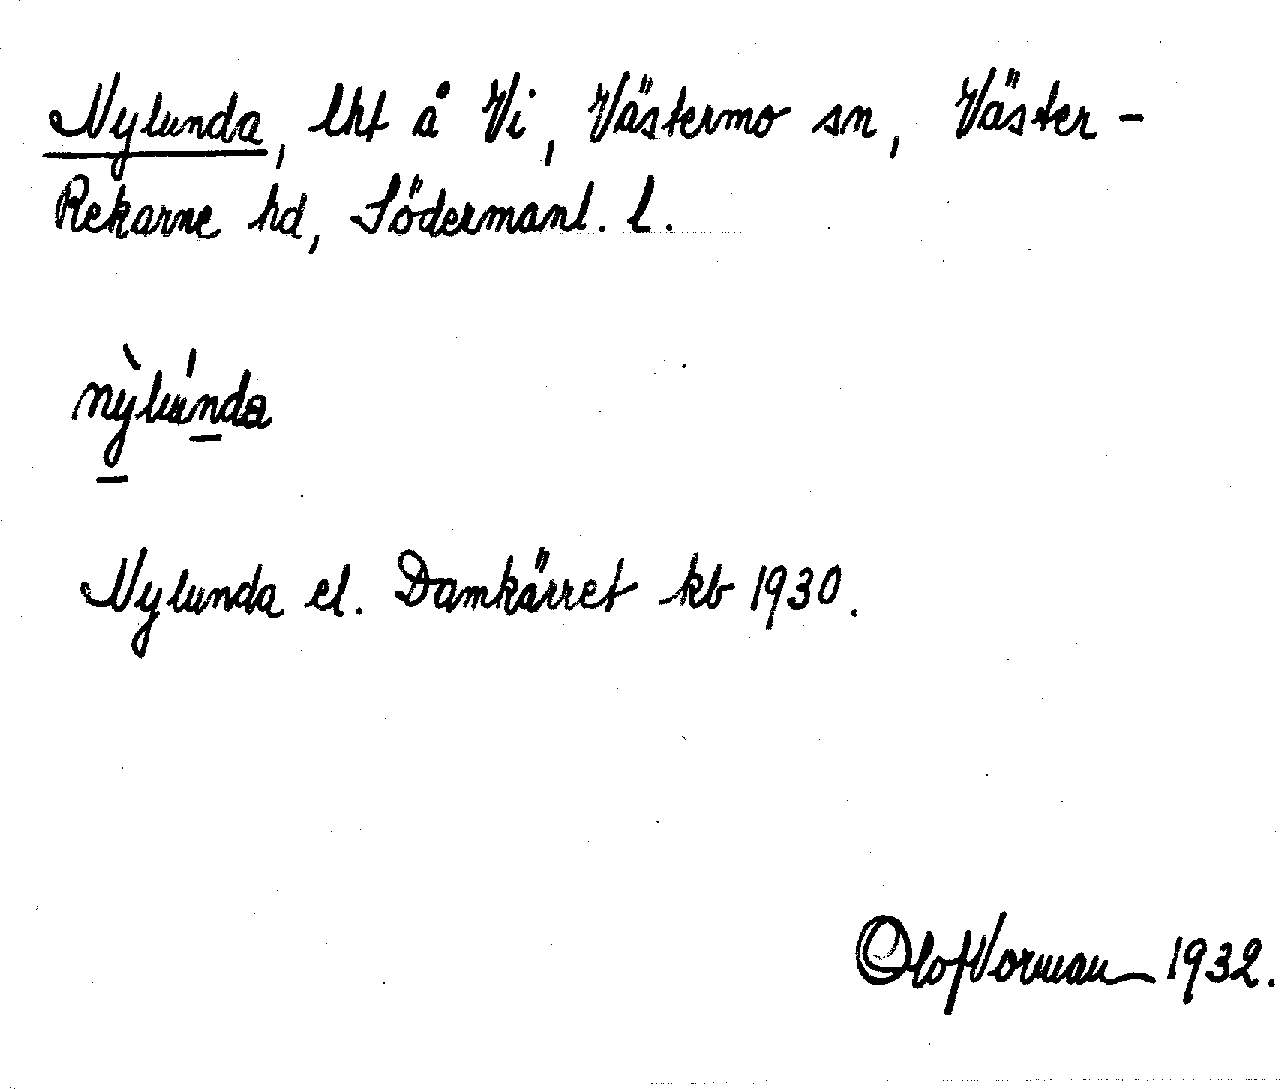 Nylunda, lht å Vi, Västermo sn, Väster-
Rekarne hd, Södermanl. l.
nỳlu̇́nda
Nylunda el. Damkärret kb 1930.
Olof Norman 1932.